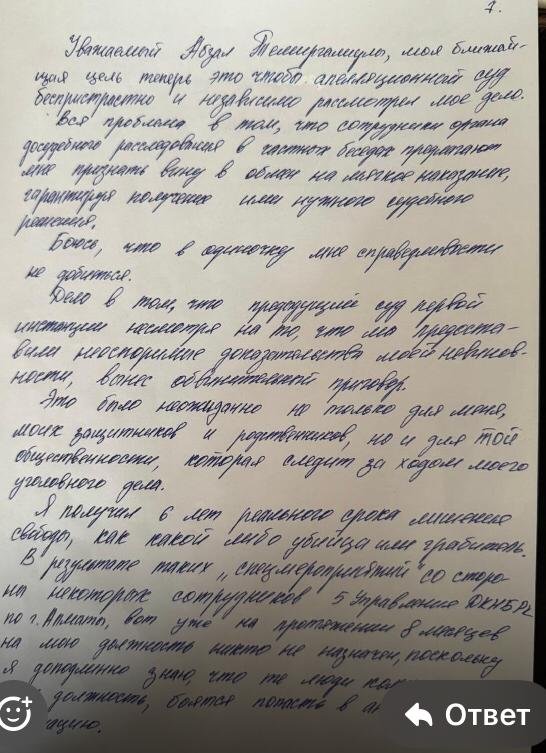 7.
Уважаемый Абзал Темиргалиулы, моя ближай-
щая цель теперь это чтобы апелляционный суд
беспристрастно и независимо рассмотрел мое дело.
Вся проблема в том, что сотрудники органа
досудебного расследования в частных беседах предлагают
мне признать вину в обмен на мягкое наказание,
гарантируя получение ими нужного судебного
решения.
Боюсь, что в одиночку мне справедливости
не добиться.
Дело в том, что предыдущий суд первой
инстанции несмотря на то, что мы предоста-
вили неоспоримые доказательства моей невинов-
ности, вынес обвинительный приговор.
Это было неожиданно не только для меня,
моих защитников и родственников, но и для той
общественности, которая следит за ходом моего
уголовного дела.
Я получил 6 лет реального срока лишения
свободы, как какой либо убийца или грабитель.
В результате таких „спецмероприятий“ со сторо-
ны некоторых сотрудников 5 Управления ДКНБ РК
по г. Алматы, вот уже на протяжении 8 месяцев
на мою должность никто не назначен, поскольку
я доподлинно знаю, что те люди
должность, боятся попасть в
Ответ